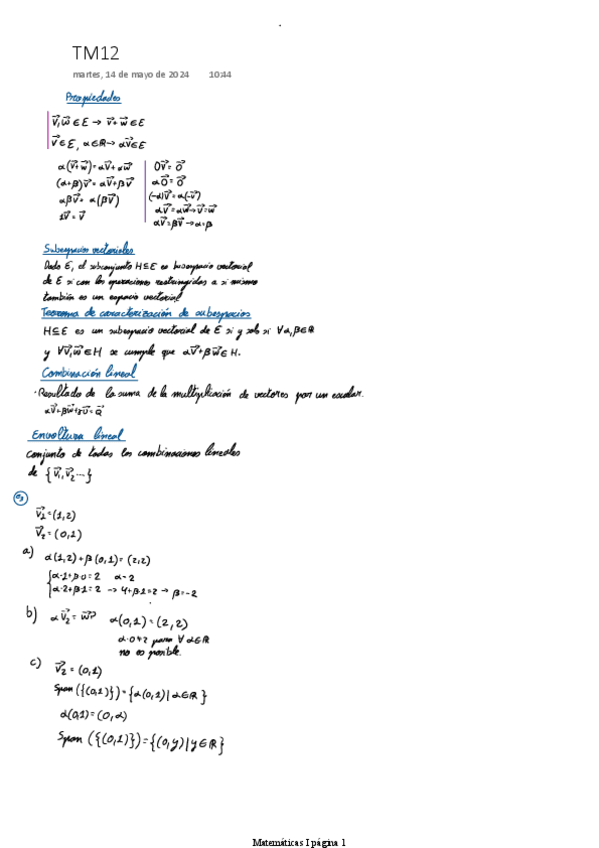 TM12
martes, 14 de mayo de 2024 10:44
Propiedades
v⃗,w⃗ ∈ E → v⃗+w⃗ ∈ E
v⃗ ∈ E, α∈ℝ → αv⃗ ∈ E
α(v⃗+w⃗) = αv⃗+αw⃗
(α+β)v⃗ = αv⃗+βv⃗
αβv⃗ = α(βv⃗)
1v⃗ = v⃗
0v⃗ = 0⃗
α0⃗ = 0⃗
(-α)v⃗ = α(-v⃗)
αv⃗ = αw⃗ → v⃗ = w⃗
αv⃗ = βv⃗ → α = β
Subespacios vectoriales
Dado E, el subconjunto H⊆E es subespacio vectorial
de E si con las operaciones restringidas a si mismo
también es un espacio vectorial
Teorema de caracterización de subespacios
H⊆E es un subespacio vectorial de E si y solo si ∀α,β∈ℝ
y ∀v⃗,w⃗∈H se cumple que αv⃗+βw⃗∈H.
Combinación lineal
·Resultado de la suma de la multiplicación de vectores por un escalar.
Envoltura lineal
conjunto de todas las combinaciones lineales
de {v⃗₁,v⃗₂...}
v⃗₁ = (1,2)
v⃗₂ = (0,1)
a) α(1,2)+β(0,1) = (2,2)
{α·1+β·0 = 2 α=2
α·2+β·1 = 2 → 4+β·1=2 → β=-2
b) αv⃗₂ = w⃗? α(0,1) = (2,2)
α·0≠2 para ∀ α∈ℝ
no es posible.
c) v⃗₂ = (0,1)
Span ({(0,1)}) = {α(0,1)|α∈ℝ}
α(0,1) = (0,α)
Span ({(0,1)}) = {(0,y)|y∈ℝ}
Matemáticas I página 1